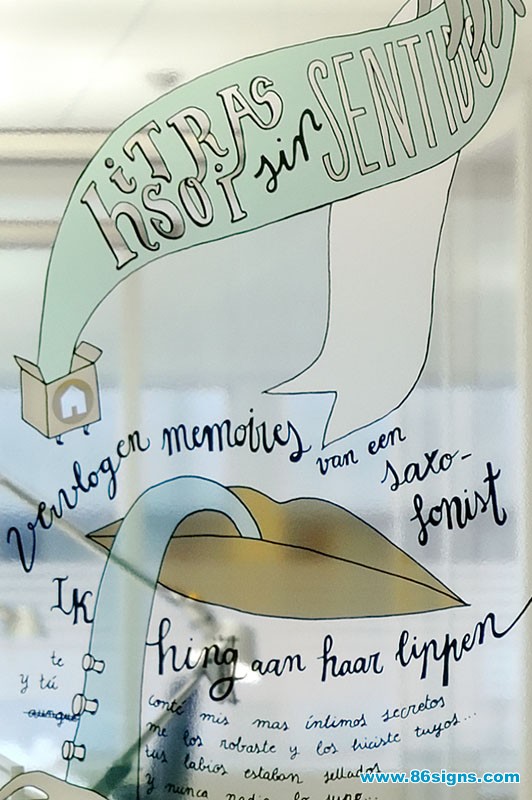 hiSTORiAS sin SENTIDO
vervlogen memoires van een saxo-
fonist
Ik
hing aan haar lippen
te
y tú
aunque
conté mis mas íntimos secretos
me los robaste y los hiciste tuyos...
tus labios estaban sellados
y nunca nadie lo supo...
www.86signs.com